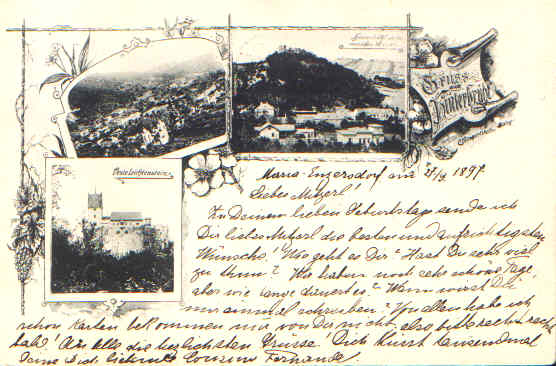 Gruss aus
Hinterbrühl
Veste Liechtenstein
Maria-Enzersdorf am 21/9 1897
Liebes Mitzerl!
Zu Deinem lieben Geburtstage sende ich
Dir liebes Mitzerl die besten und aufrichtigsten
Wünsche! Wie geht es Dir? Hast Du sehr viel
zu thun? Wir haben noch sehr schöne Tage,
aber wie lange dauert es? Wann wirst Du
mir einmal schreiben? Von allen habe ich
schon Karten bekommen nur von Dir nicht, also bitte recht
bald! An alle die herzlichsten Grüsse! Dich küsst tausendmal
Deine Dich liebende Cousine Fernande.